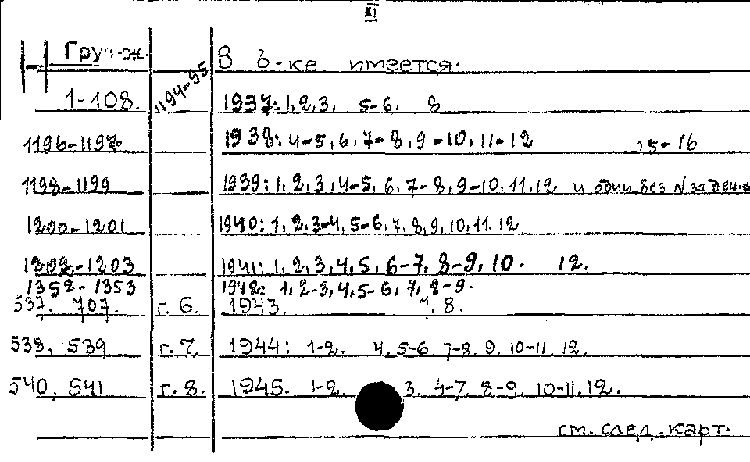 XI
Груп-ж. В б-ке имеется:
1-108. 1194-95 1937: 1, 2, 3, 5-6, 8
1196-1197 1938: 4-5, 6, 7-8, 9-10, 11-12 15-16
1198-1199 1939: 1, 2, 3, 4-5, 6, 7-8, 9-10, 11, 12 и один без №
1200-1201 1940: 1, 2, 3-4, 5-6, 7, 8, 9, 10, 11, 12
1202-1203 1941: 1, 2, 3, 4, 5, 6-7, 8-9, 10. 12.
1352-1353 1942: 1, 2-3, 4, 5-6, 7, 8-9.
537. 707. г. 6. 1943. 7, 8.
538, 539 г. 7. 1944: 1-2. 4, 5-6, 7-8, 9, 10-11, 12.
540, 541 г. 8. 1945. 1-2 3, 4-7, 8-9, 10-11, 12.
см. след. карт.